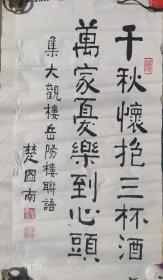 千秋懷抱三杯酒
萬家憂樂到心頭
集大觀樓岳陽樓聯語
楚图南